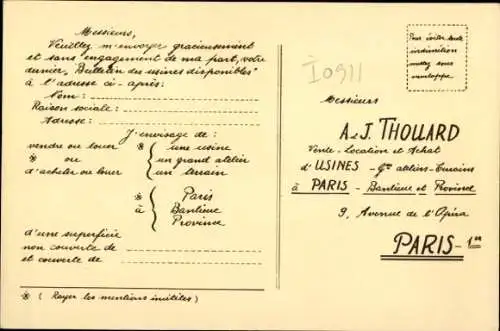 Messieurs,
Veuillez m'envoyer gracieusement
et sans engagement de ma part, votre
dernier "Bulletin des usines disponibles"
à l'adresse ci-après:
Nom:
Raison sociale:
Adresse:
J'envisage de:
vendre ou louer
※ ou
d'acheter ou louer
※ { une usine
un grand atelier
un terrain
※ à { Paris
Banlieue
Province
d'une superficie
non couverte de
et couverte de
※ (Rayer les mentions inutiles)
Pour éviter toute
indiscrétion
mettez sous
enveloppe
I0911
Messieurs
A & J. THOUARD
Vente - Location et Achat
d'USINES - Gds ateliers - Terrains
à PARIS - Banlieue et Province
9, Avenue de l'Opéra
PARIS - 1er